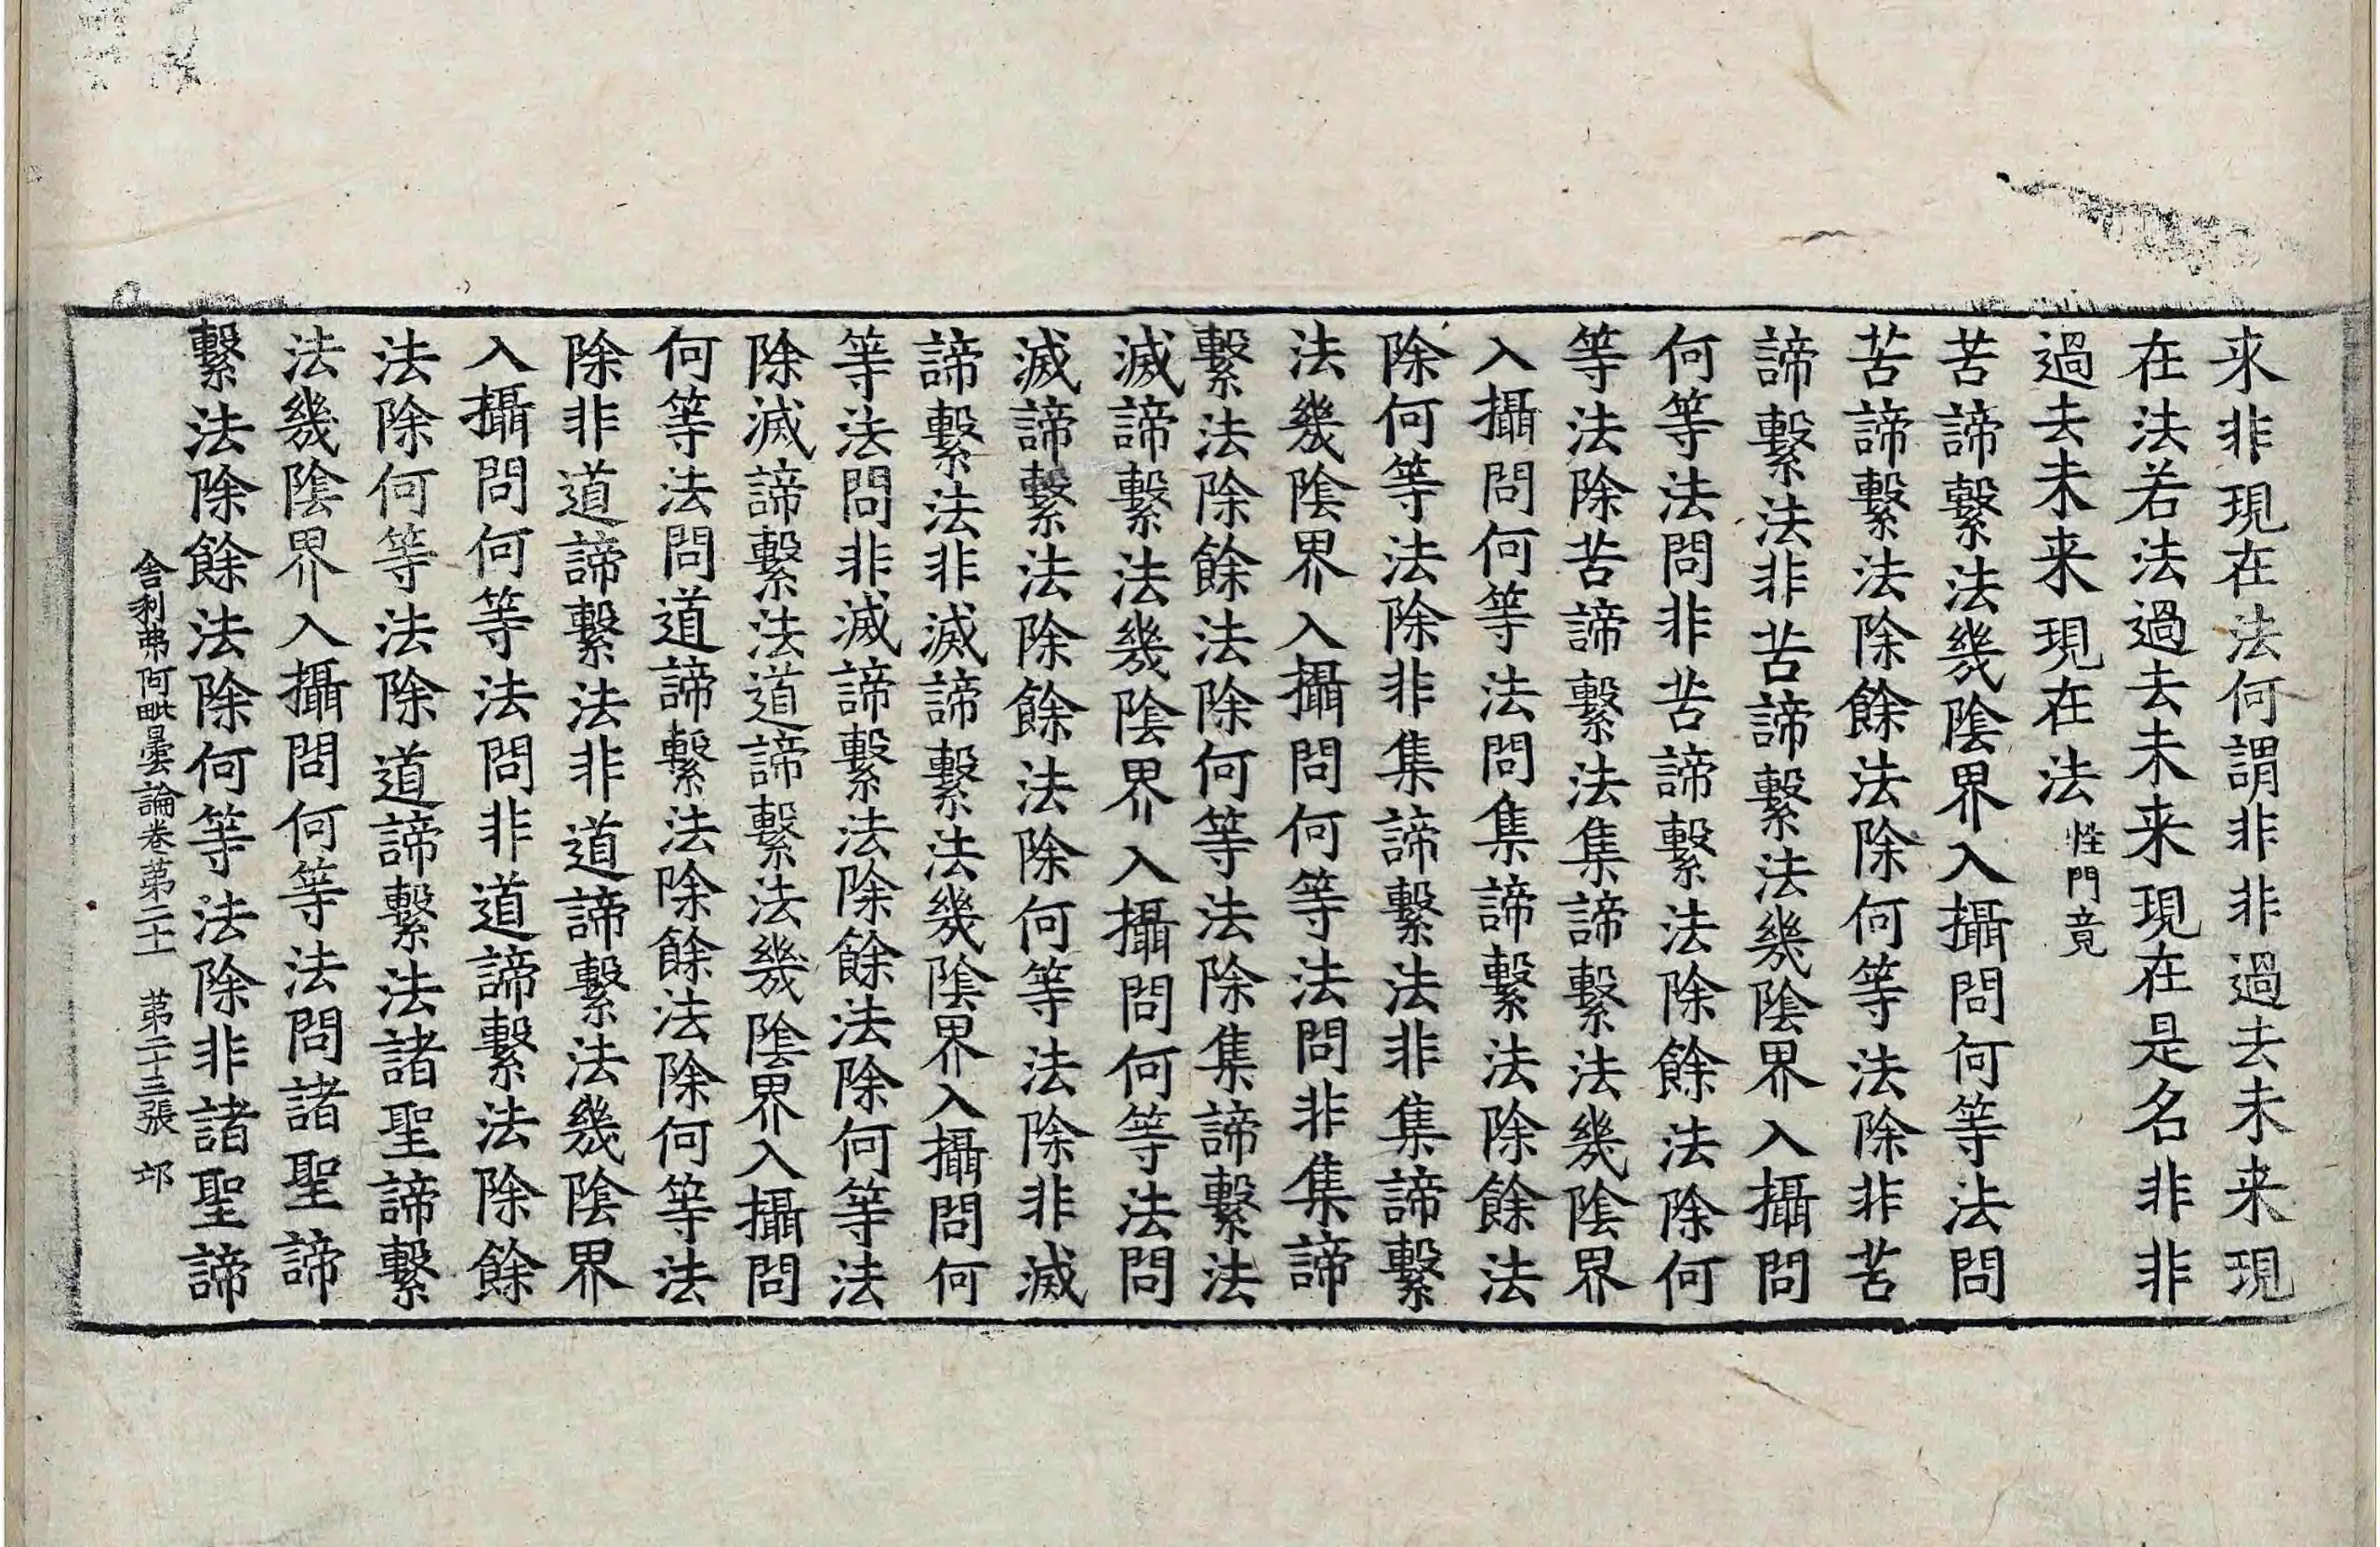 来非現在法何謂非非過去未来現
在法若法過去未来現在是名非非
過去未来現在法性門竟
苦諦繫法幾陰界入攝問何等法問
苦諦繫法除餘法除何等法除非苦
諦繫法非苦諦繫法幾陰界入攝問
何等法問非苦諦繫法除餘法除何
等法除苦諦繫法集諦繫法幾陰界
入攝問何等法問集諦繫法除餘法
除何等法除非集諦繫法非集諦繫
法幾陰界入攝問何等法問非集諦
繫法除餘法除何等法除集諦繫法
滅諦繫法幾陰界入攝問何等法問
滅諦繫法除餘法除何等法除非滅
諦繫法非滅諦繫法幾陰界入攝問何
等法問非滅諦繫法除餘法除何等法
除滅諦繫法道諦繫法幾陰界入攝問
何等法問道諦繫法除餘法除何等法
除非道諦繫法非道諦繫法幾陰界
入攝問何等法問非道諦繫法除餘
法除何等法除道諦繫法諸聖諦繫
法幾陰界入攝問何等法問諸聖諦
繫法除餘法除何等法除非諸聖諦
舎利弗阿毗曇論卷苐二十一 苐二十三張